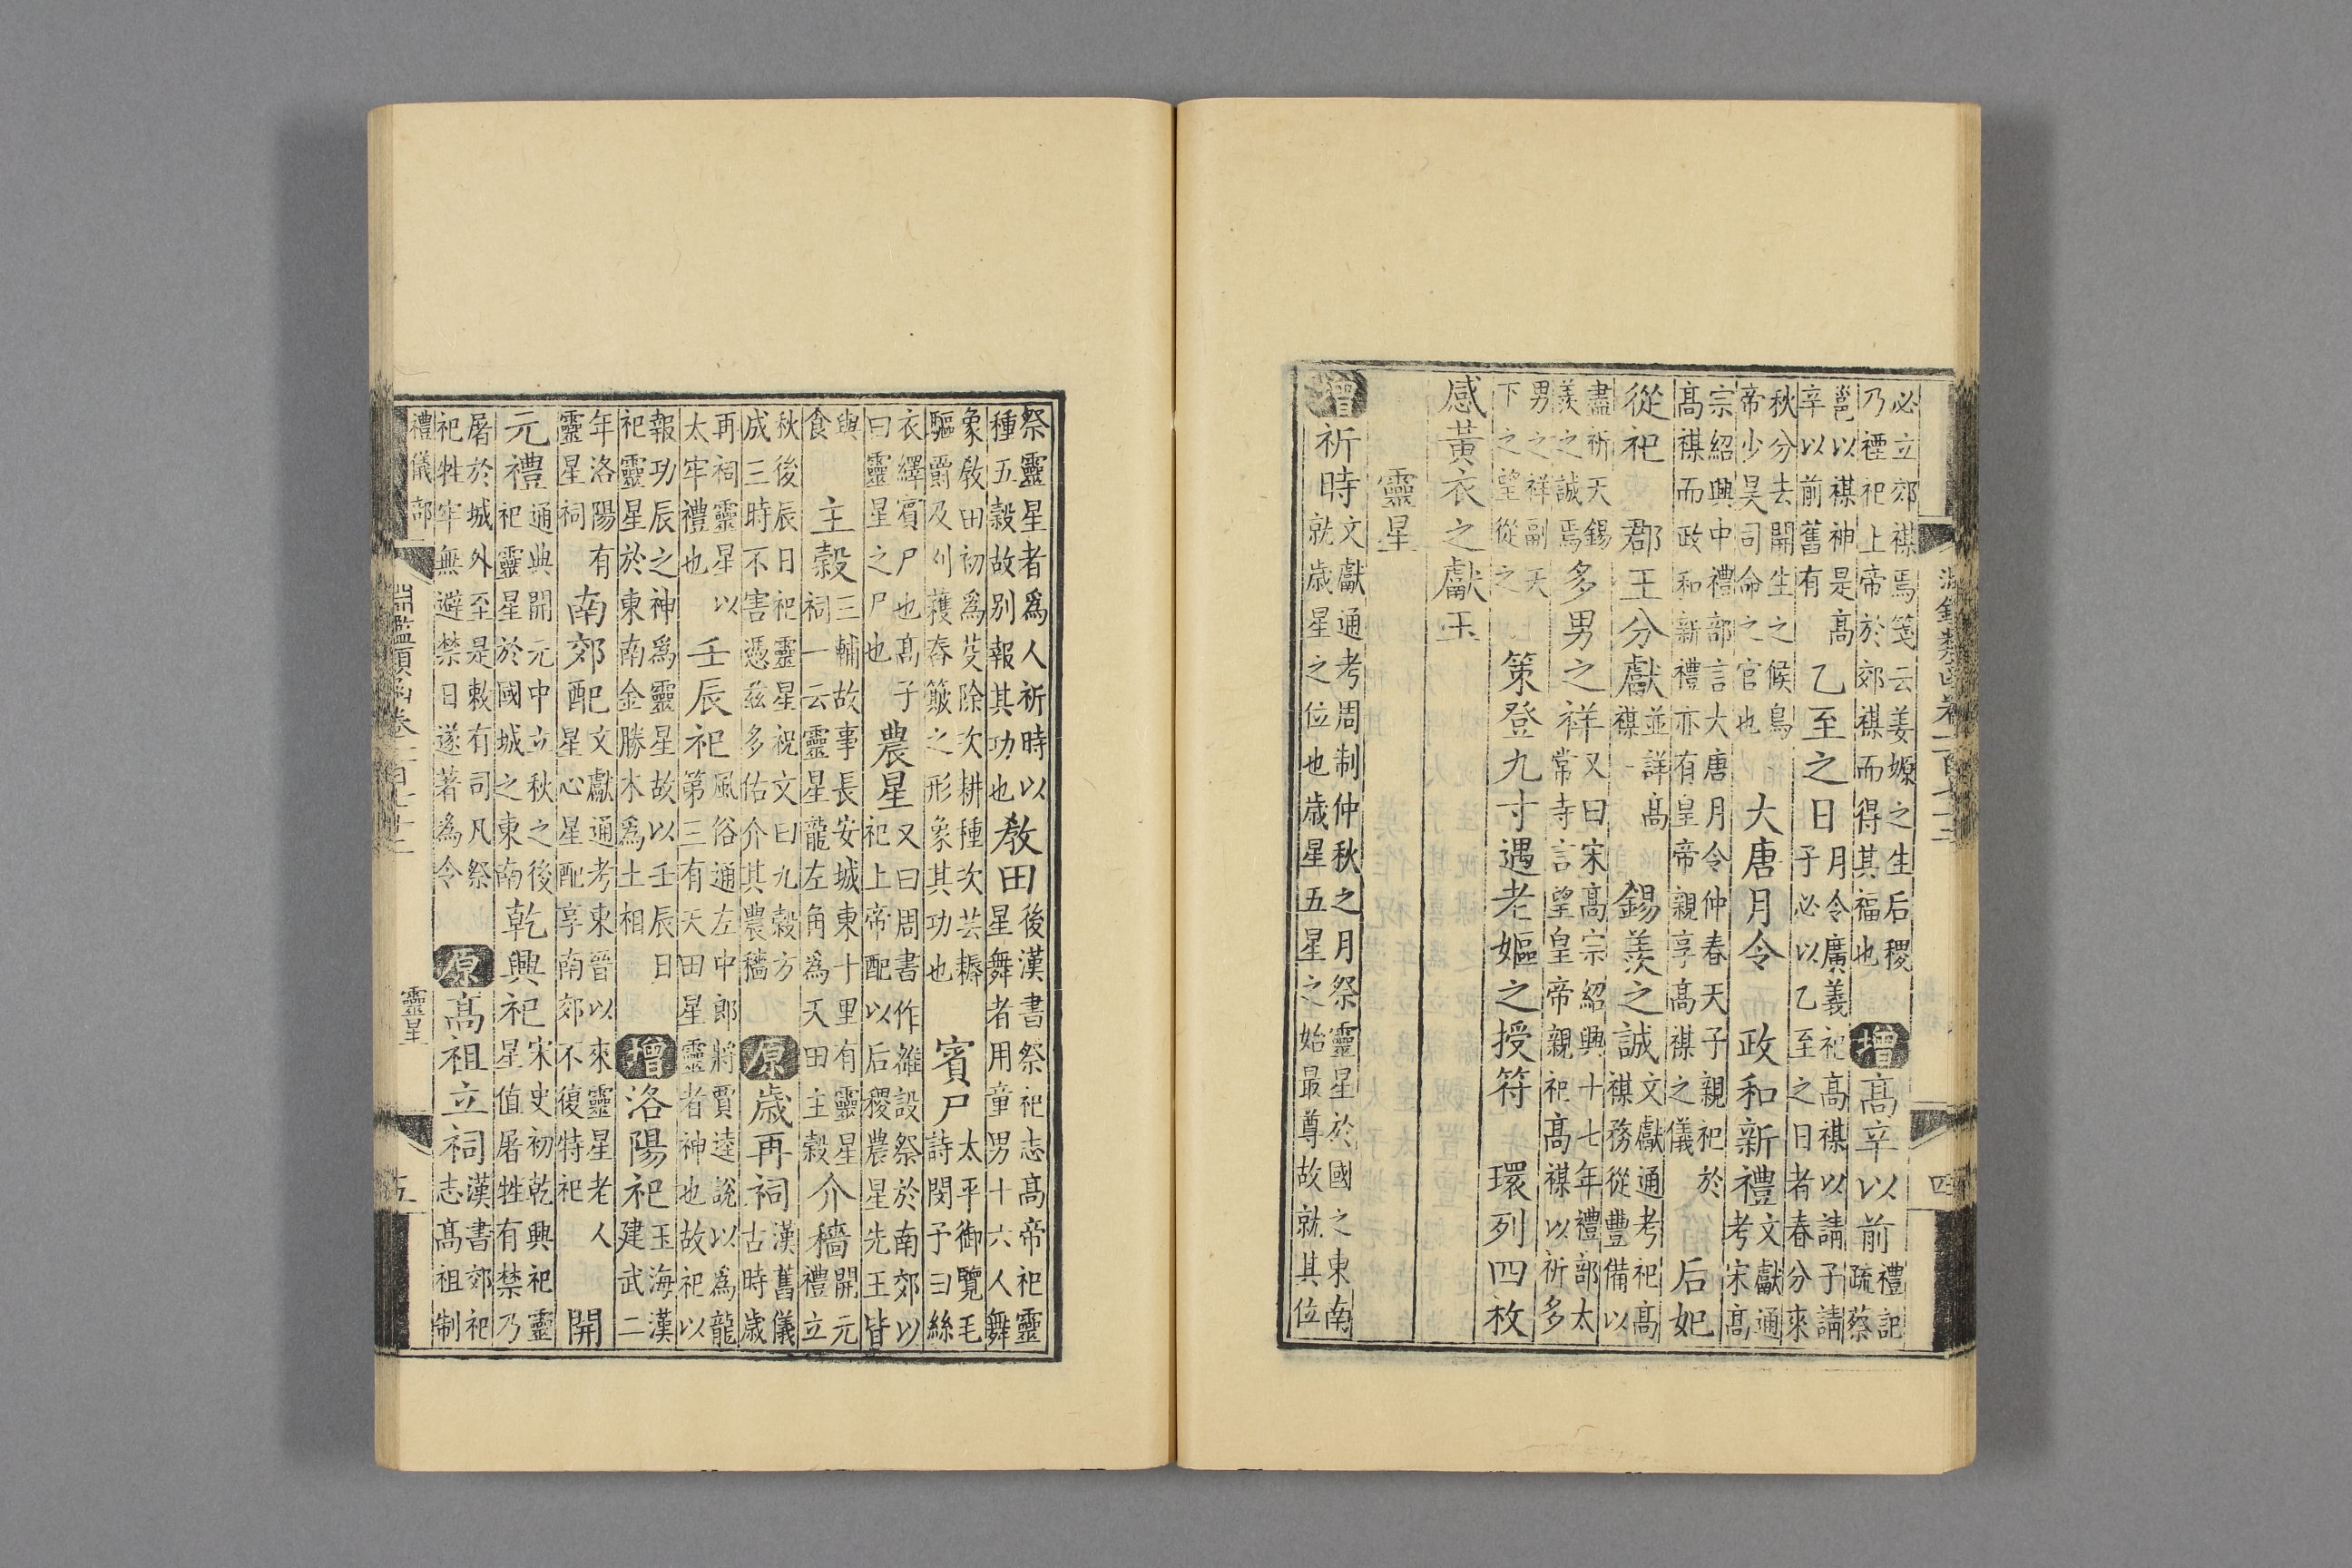 淵鑑類函卷一百七十三 四
必立郊禖焉箋云姜嫄之生后稷
乃禋祀上帝於郊禖而得其福也
增 高辛以前
禮記
疏蔡
邕以禖神是高
辛以前舊有
乙至之日
月令廣義祀高禖以請子請
子必以乙至之日者春分來
秋分去開生之候鳥
帝少昊司命之官也
大唐月令 政和新禮
文獻通
考宋高
宗紹興中禮部言大唐月令仲春天子親祀於
高禖而政和新禮亦有皇帝親享高禖之儀
后妃
從祀 郡王分獻
並詳高
禖
錫羨之誠
文獻通考祀高
禖務從豐備以
盡祈天錫
羨之誠焉
多男之祥
又曰宋高宗紹興十七年禮部太
常寺言望皇帝親祀高禖以祈多
男之祥副天
下之望從之
策登九寸遇老嫗之授符 環列四枚
感黃衣之獻玉
靈星
增 祈時
文獻通考周制仲秋之月祭靈星於國之東南
就歲星之位也歲星五星之始最尊故就其位
祭靈星者為人祈時以
種五穀故别報其功也
教田
後漢書祭祀志高帝祀靈
星舞者用童男十六人舞
象教田初為芟除次耕種次芸耨
驅爵及刈穫舂簸之形象其功也
賓尸
太平御覽毛
詩閔予曰絲
衣繹賓尸也高子
曰靈星之尸也
農星
又曰周書作雒設祭於南郊以
祀上帝配以后稷農星先王皆
與
食
主穀
三輔故事長安城東十里有靈星
祠一云靈星龍左角為天田主穀
介穡
開元
禮立
秋後辰日祀靈星祝文曰九穀方
成三時不害憑茲多佑介其農穡
原 歲再祠
漢舊儀
古時歲
再祠靈星以
太牢禮也
壬辰祀
風俗通左中郎將賈逵說以為龍
第三有天田星靈者神也故祀以
報功辰之神為靈星故以壬辰日
祀靈星於東南金勝木為土相
增 洛陽祀
玉海漢
建武二
年洛陽有
靈星祠
南郊配
文獻通考東晉以來靈星老人
星心星配享南郊不復特祀
開
元禮
通典開元中立秋之後
祀靈星於國城之東南
乾興祀
宋史初乾興祀靈
星值屠牲有禁乃
屠於城外至是敕有司凡祭
祀牲牢無避禁日遂著為令
原 高祖立祠
漢書郊祀
志高祖制
禮儀部
淵鑑類函卷一百七十三 靈星 五